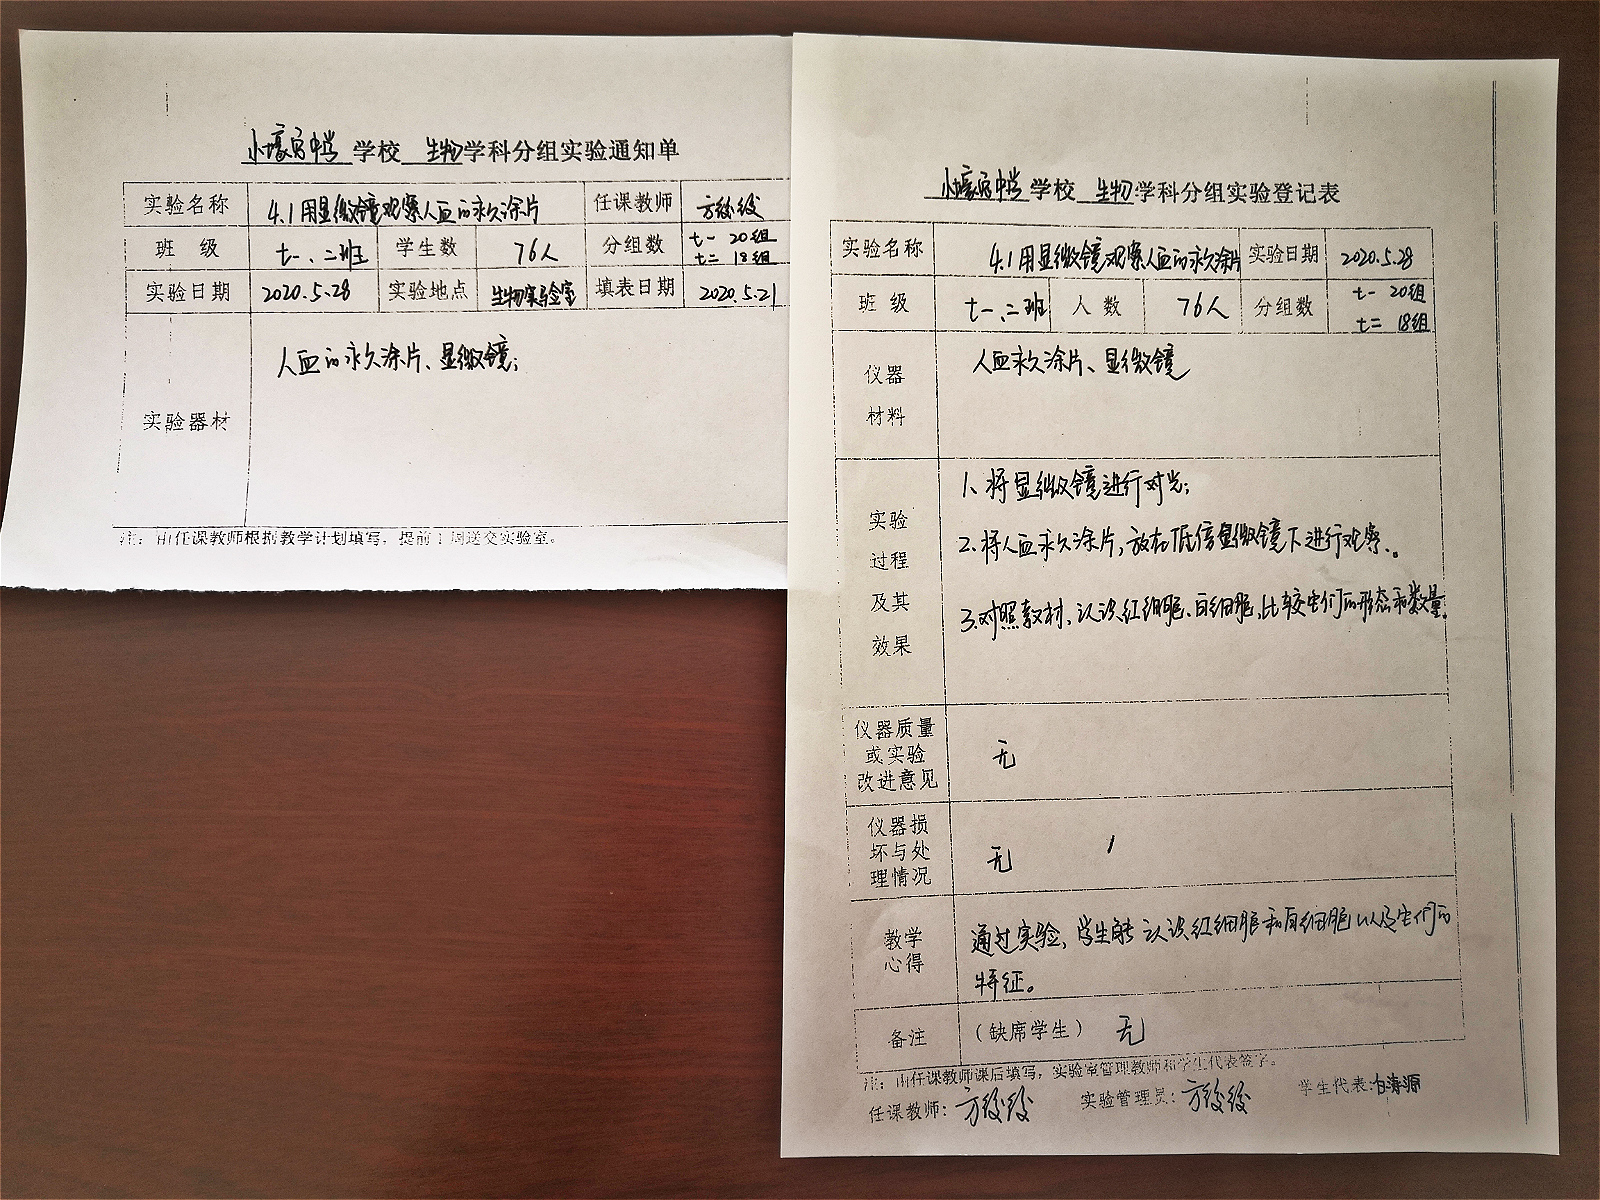 小壕官中学 学校 生物 学科分组实验通知单
实验名称 4.1用显微镜观察人血的永久涂片 任课教师 方姣姣
班 级 七一、二班 学生数 76人 分组数 七一 20组
七二 18组
实验日期 2020.5.28 实验地点 生物实验室 填表日期 2020.5.21
实验器材 人血的永久涂片、显微镜;
注: 由任课教师根据教学计划填写,提前1周送交实验室。
小壕官中学 学校 生物 学科分组实验登记表
实验名称 4.1用显微镜观察人血的永久涂片 实验日期 2020.5.28
班 级 七一、二班 人 数 76人 分组数 七一 20组
七二 18组
仪器
材料
人血永久涂片、显微镜
实验
过程
及其
效果
1、将显微镜进行对光;
2.将人血永久涂片,放在低倍显微镜下进行观察。
3.对照教材,认识红细胞、白细胞,比较它们的形态和数量。
仪器质量
或实验
改进意见
无
仪器损
坏与处
理情况
无
教学
心得
通过实验,学生能认识红细胞和白细胞以及它们的
特征。
备注 (缺席学生) 无
注: 由任课教师课后填写,实验室管理教师和学生代表签字。
任课教师: 方姣姣 实验管理员: 方姣姣 学生代表: 白海源